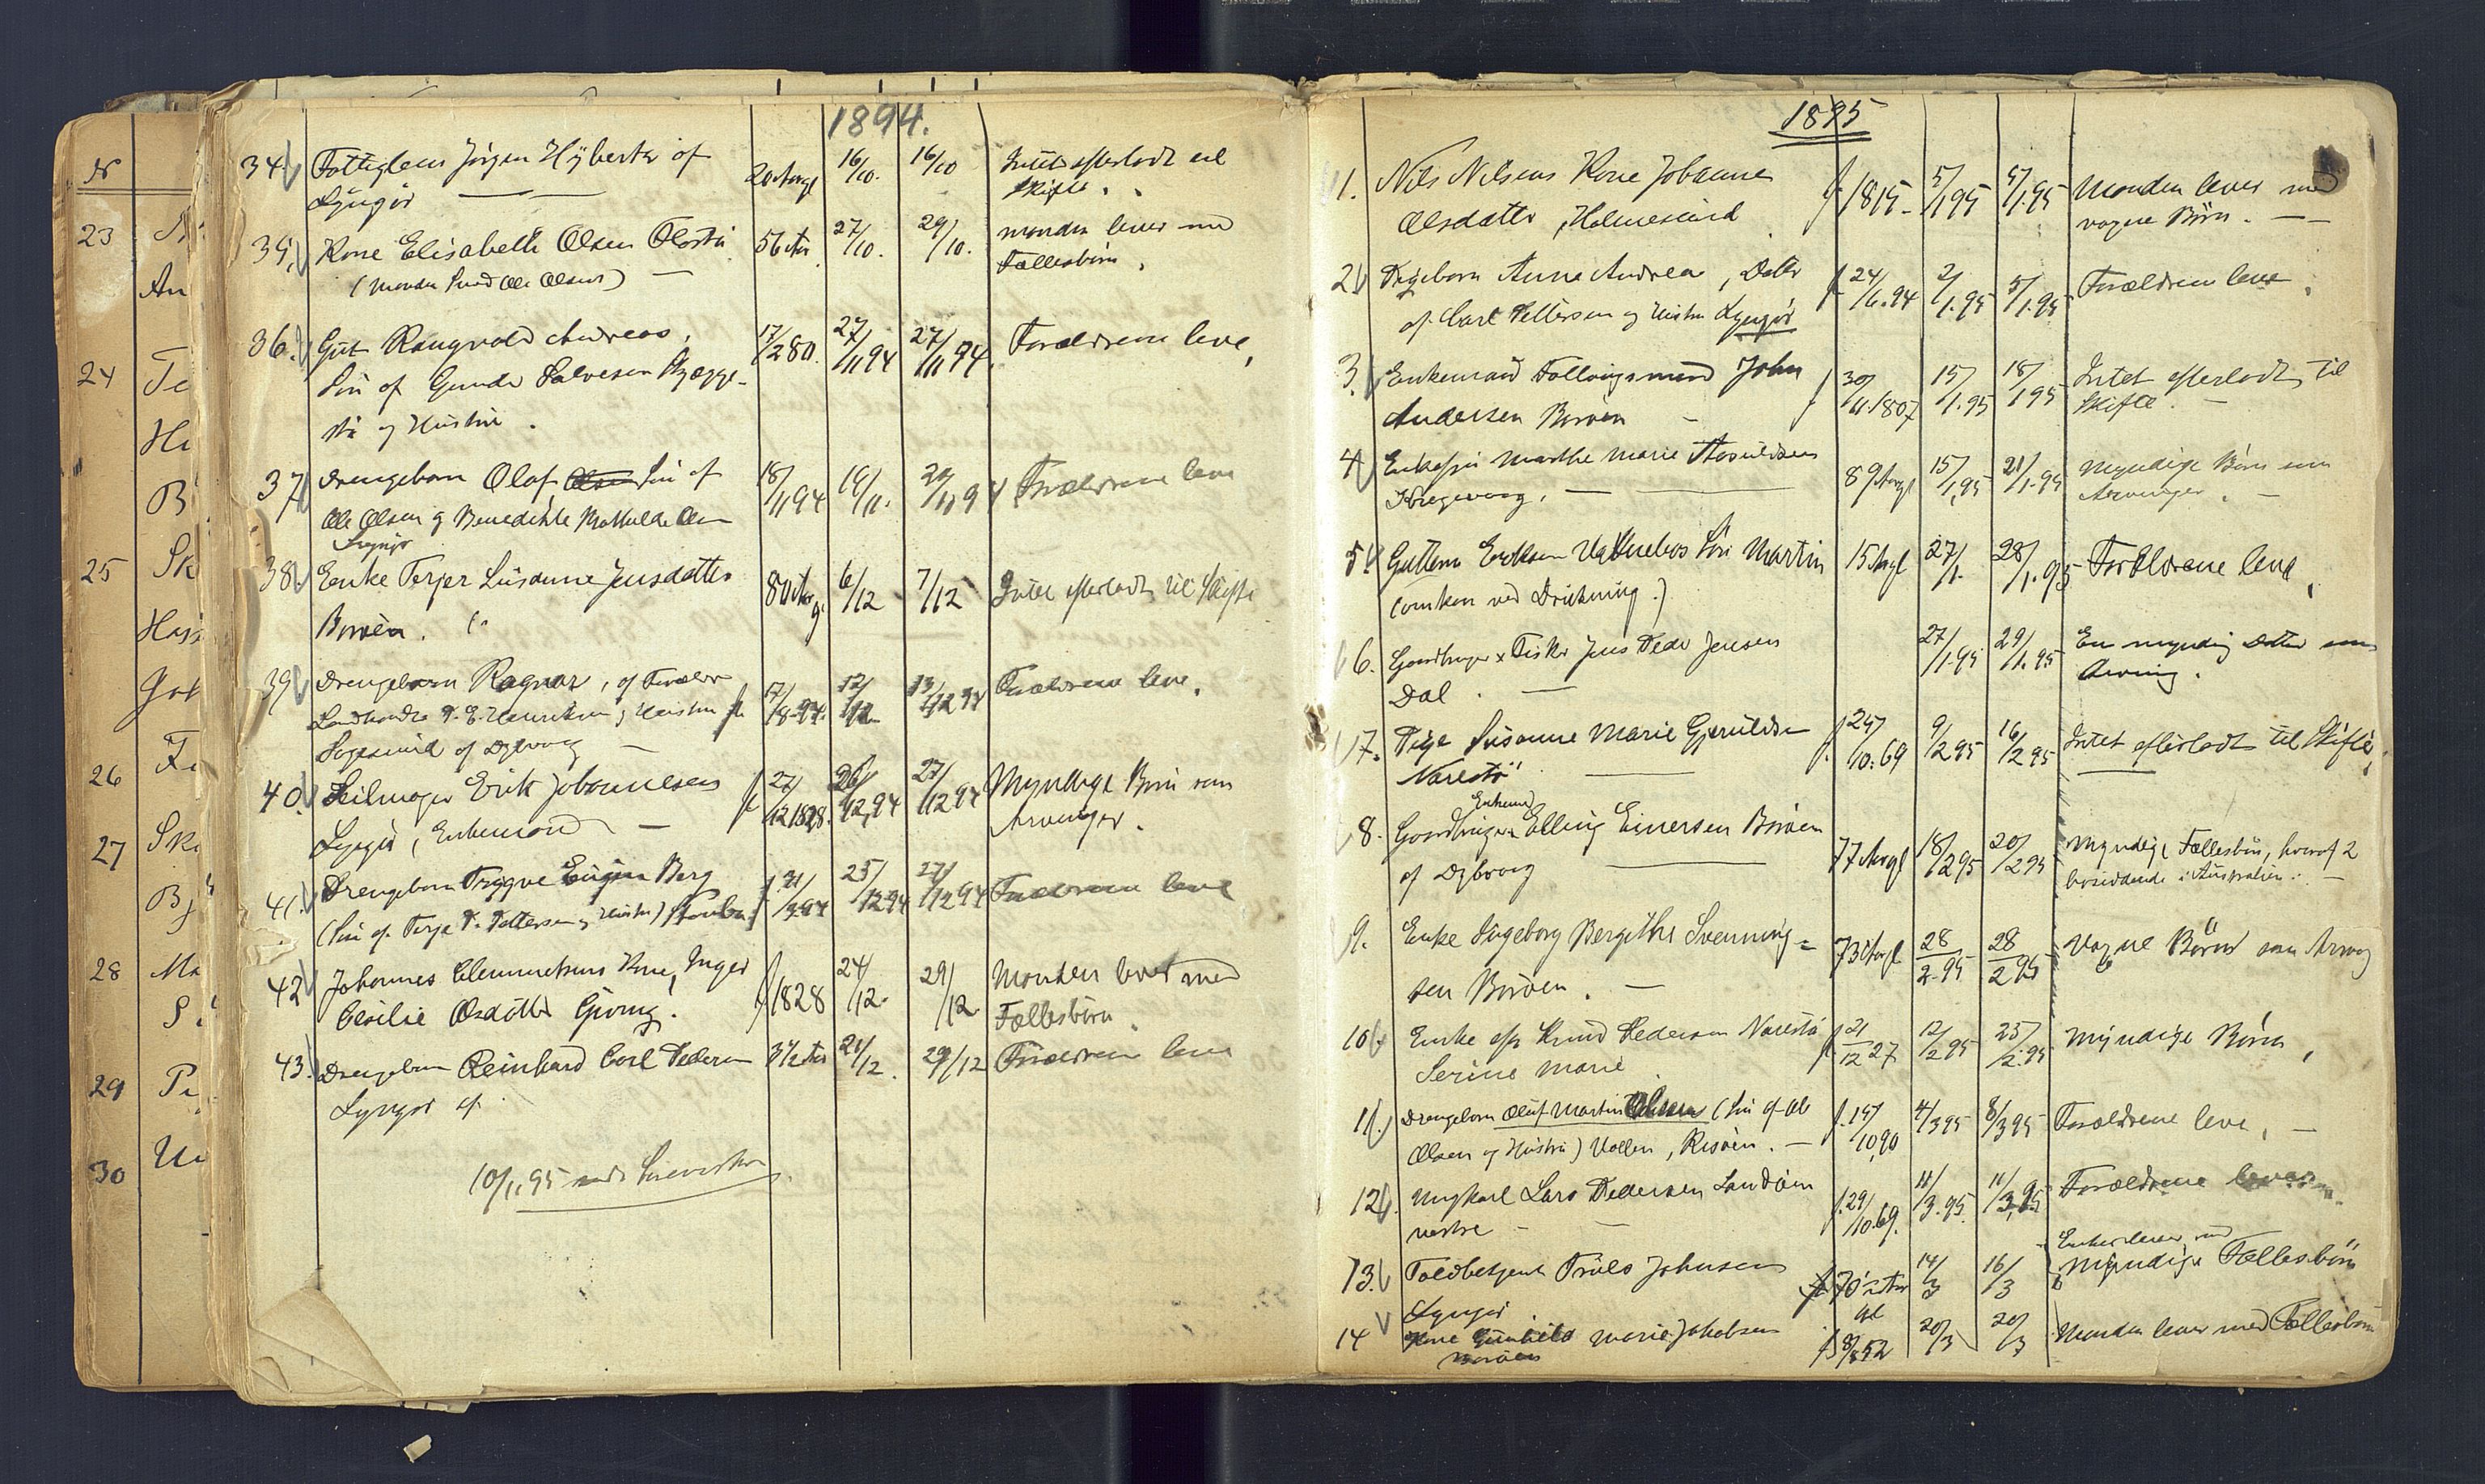 N
23
An
24 Te
Hi
B
25 Sk
Hass
Gok
26 Fa
27 Sk
B
28 Ma
S
29 Pe
30
1894.
34. Fattiglem Jörgen Hybertsen af 20 Aar gl 16/10. 16/10 Intet efterladt til
Lyngör Skifte.
35. Kone Elisabeth Olsen Flostö 56 Aar 27/10. 29/10. manden lever med
(Manden Ole Olsen) Fællesbörn.
36. Gut Rangvald Andreas, 17/2 80. 27/11 94 27/11 94. Forældrene leve,
Sön af Gunder Salvesen
og Hustru.
37. Drengebarn Olaf Sön af 18/11 94 19/11. 29/11 94 Forældrene leve
Ole Olsen og Benedikte Mathilde Olsen
Lyngör
38. Enke Terjer Susanne Jensdatter 80 Aar g. 6/12 7/12 Intet efterladt til Skifte
Borøen.
39. Drengebarn Ragnar, af Forældre 17/8-94. 12/12 13/12 94 Forældrene leve.
Landhandler P. E. Henriksen og Hustru f.
af Dybvaag
40. Seilmager Erik Johannesen f. 27/12 1828. 26/12 94 27/12 94 Myndige Börn som
Lyngör, Enkemand Arvinger.
41. Drengebarn Trygve Eugen Berg f. 21/3 94 25/12 94 27/12 94 Forældrene leve
(Sön af Terje P. Pettersen og Hustru)
42. Johannes Clemmetsens Kone, Inger f. 1828 24/12. 29/12 Manden lever med
Cecilie Olsdatter Gjeving. Fællesbörn.
43. Drengebarn Reinhard Carl Pedersen 3 1/2 Aar 21/12. 29/12 Forældrene leve
Lyngör
10/1 95
1895
1. Nils Nilsens Kone Johanne f. 1815 - 5/1 95 5/1.95 Manden lever med
Olsdatter, Holmesund voxne Börn.
2. Pigebarn Anne Andrea, Datter f. 24/6.94 2/1.95 5/1.95 Forældrene leve.
af Carl Pettersen og Hustru Lyngör
3. Enkemand John f. 30/11.1807 15/1.95 18/1 95 Intet efterladt til
Andersen Borøen Skifte.
4. Enkefru Marthe Marie Aasulvsen 89 Aar gl 15/1.95 21/1.95 Myndige Börn som
Krogevaag. Arvinger.
5. Guttorm Eriksen Sön Martin 15 Aar gl 27/1. 28/1.95 Forældrene leve,
(omkom ved Drukning.)
6. Gaardbruger & Fisker Jens Peder Jensen 27/1.95 29/1.95 En myndig Datter som
Dal. Arving.
7. Pige Susanne Marie Gjeruldsen f. 24/10.69 9/2 95 16/2 95 Intet efterladt til Skifte,
Narestö
8. Gaardbruger Enkemd Elling Einersen Borøen 77 Aar gl 18/2 95 20/2 95 Myndige Fællesbörn, hvoraf 2
af Dybvaag bosiddende i Australien.
9. Enke Ingeborg Bergithe Svenning= 73 Aar gl 28/2 95 28/2 95 Voxne Börn som Arving
sen Borøen.
10. Enke efter Knud Pedersen Narestö f. 21/12 27 12/2 95 25/2.95 Myndige Börn,
Serine Marie
11. Drengebarn Oluf Martin Olsen (Sön af Ole f. 15/10 90 4/3 95 8/3 95 Forældrene leve,
Olsen og Hustru) Vollen, Risöen.
12. Ungkarl Lars Pedersen Sandöen f. 29/10.69. 11/3.95. 11/3.95 Forældrene lever
vestre
13. Toldbetjent Truls Johnsen 14/3 16/3 Enken lever med
myndige Fællesbörn
Lyngör.
14 Kone Gunhild Marie Jakobsen f. 8/8 52 20/3 20/3 Manden lever med Fællesbörn
Borøen